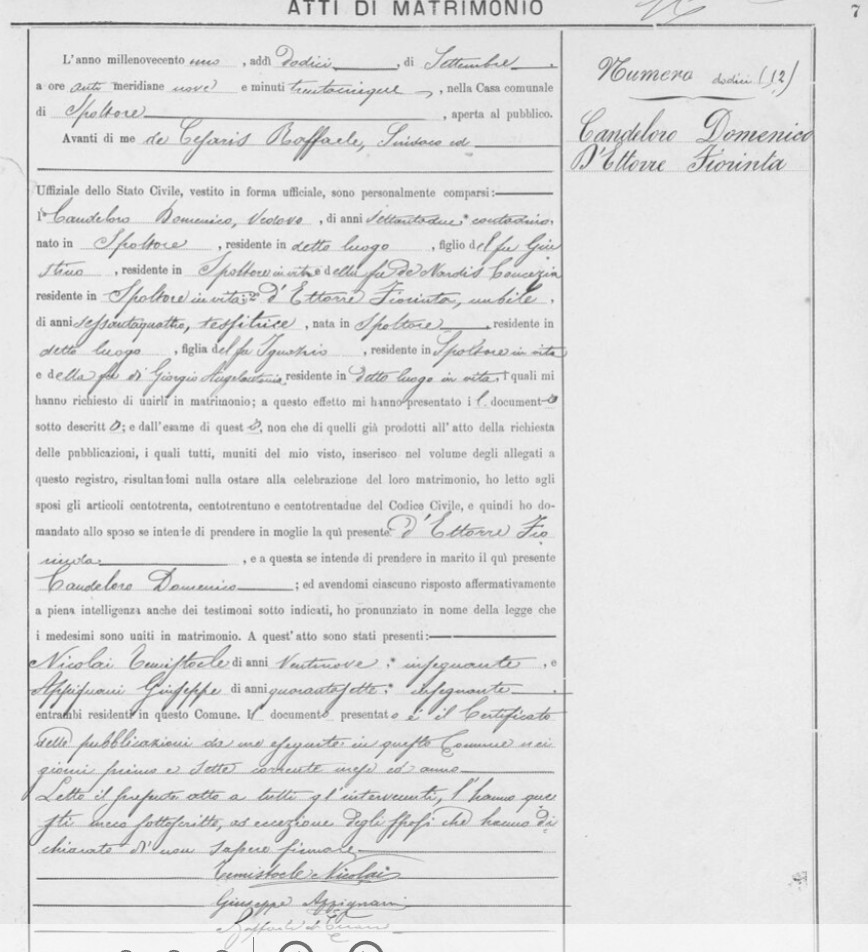 ATTI DI MATRIMONIO
7
Numero dodici (12)
Candeloro Domenico
D'Ettorre Fiorinta
L'anno millenovecento uno, addì dodici, di Settembre,
a ore anti meridiane nove e minuti trentacinque, nella Casa comunale
di Spoltore, aperta al pubblico.
Avanti di me de Cesaris Raffaele, Sindaco ed
Uffiziale dello Stato Civile, vestito in forma ufficiale, sono personalmente comparsi:
1° Candeloro Domenico, Vedovo, di anni settantadue, contadino,
nato in Spoltore, residente in detto luogo, figlio del fu Giu
stino, residente in Spoltore in vita e della fu De Nardis Concezia
residente in Spoltore in vita; 2° d'Ettorre Fiorinta, nubile,
di anni sessantaquattro, tessitrice, nata in Spoltore, residente in
detto luogo, figlia del fu Ignazio, residente in Spoltore in vita
e della fu di Giorgio Angelantonia, residente in detto luogo in vita, i quali mi
hanno richiesto di unirli in matrimonio; a questo effetto mi hanno presentato i l document o
sotto descritt o; e dall'esame di quest o, non che di quelli già prodotti all'atto della richiesta
delle pubblicazioni, i quali tutti, muniti del mio visto, inserisco nel volume degli allegati a
questo registro, risultandomi nulla ostare alla celebrazione del loro matrimonio, ho letto agli
sposi gli articoli centotrenta, centotrentuno e centotrentadue del Codice Civile, e quindi ho do-
mandato allo sposo se intende di prendere in moglie la quì presente d'Ettorre Fio
rinta, e a questa se intende di prendere in marito il quì presente
Candeloro Domenico; ed avendomi ciascuno risposto affermativamente
a piena intelligenza anche dei testimoni sotto indicati, ho pronunziato in nome della legge che
i medesimi sono uniti in matrimonio. A quest'atto sono stati presenti:
Nicolai Temistocle di anni Ventinove, insegnante, e
Appignani Giuseppe di anni quarantasette, insegnante,
entrambi residenti in questo Comune. Il documento presentato è il Certificato
delle pubblicazioni da me eseguite in questo Comune nei
giorni primo e otto corrente mese ed anno
Letto il presente atto a tutti gl'intervenuti, l'hanno que
sti meco sottoscritto, ad eccezione degli sposi che hanno di
chiarato di non sapere firmare
Temistocle Nicolai
Giuseppe Appignani
Raffaele de Cesaris